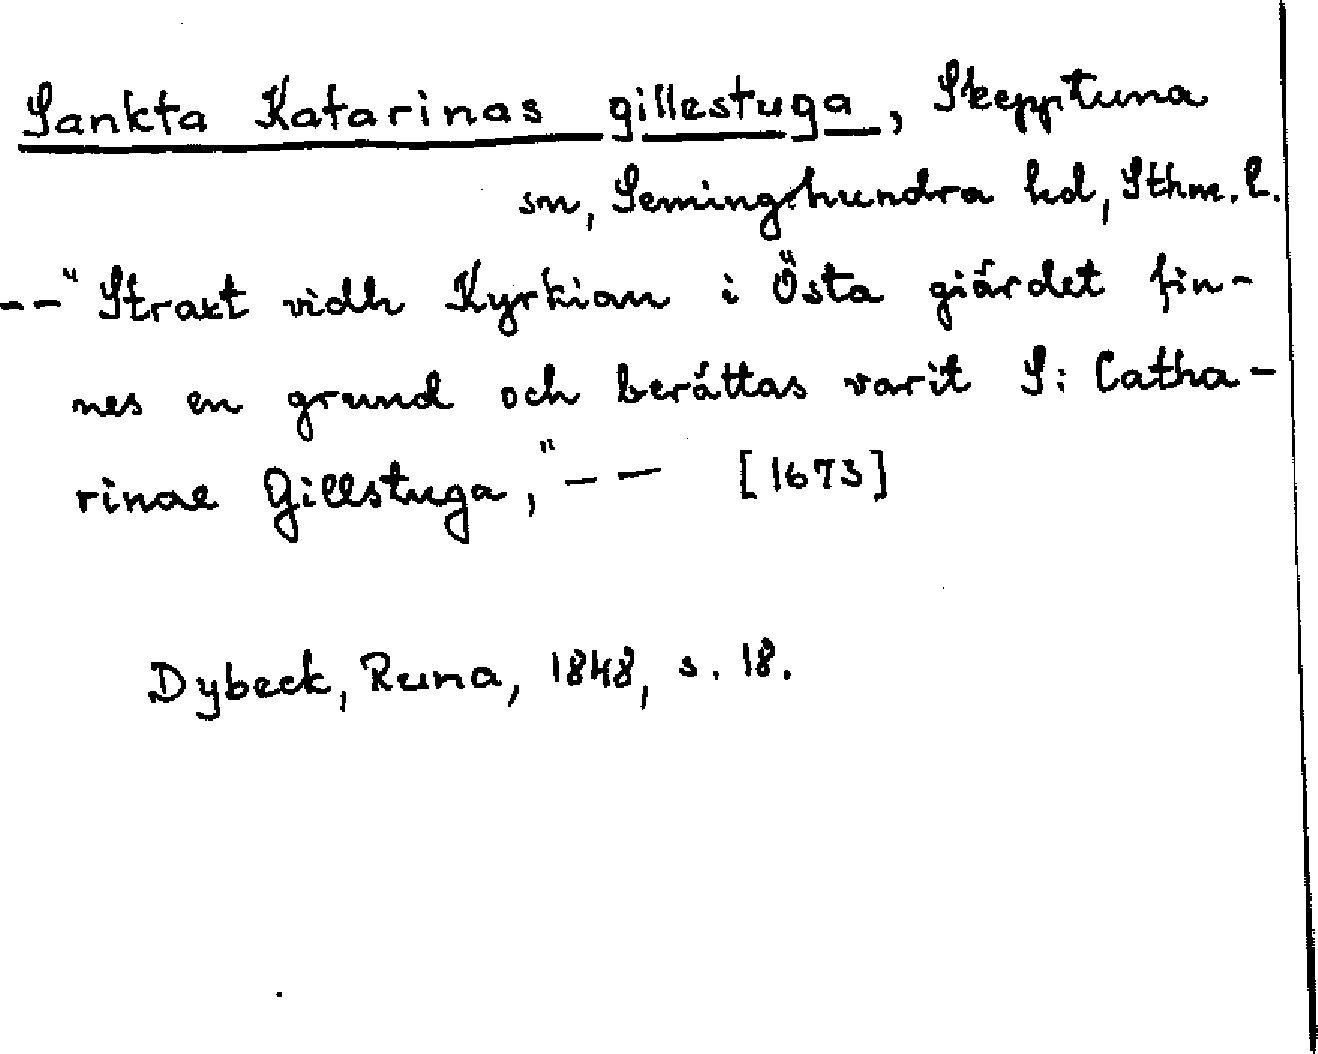 Sankta Katarinas gillestuga, Skepptuna
sn, Seminghundra hd, Sthm. l.
--"Straxt vidh Kyrkian i Östa giärdet fin-
nes en grund och berättas varit S: Catha-
rinae Gillstuga,"-- [1673]
Dybeck, Runa, 1848, s. 18.